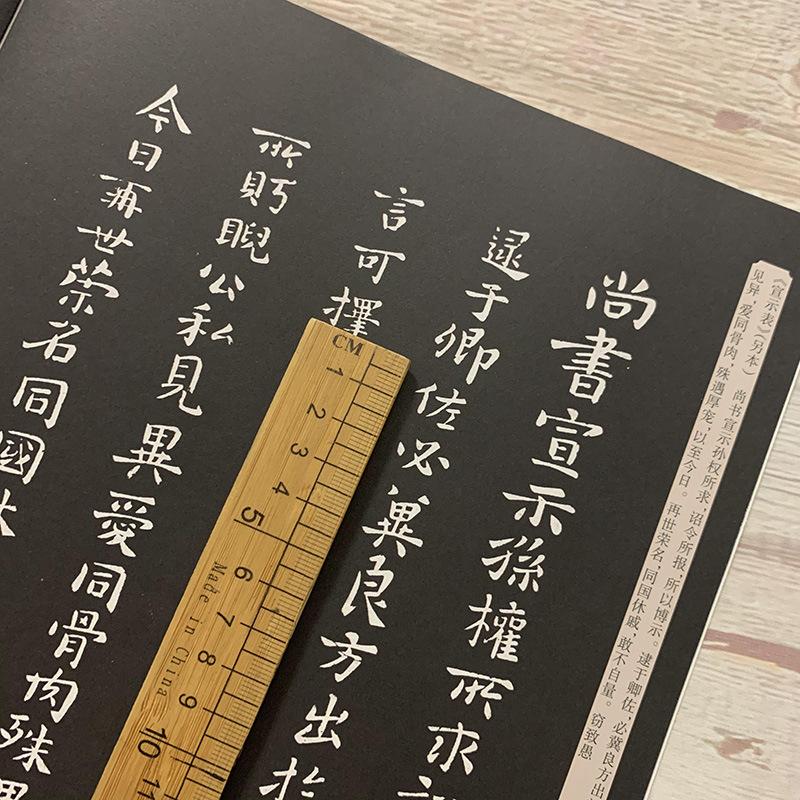 《宣示表》（另本） 尚书宣示孙权所求，诏令所报，所以博示。逮于卿佐，必冀良方出
见异，爱同骨肉，殊遇厚宠，以至今日。再世荣名，同国休戚，敢不自量。窃致愚
尚書宣示孫權所求
逮于卿佐必冀良方出於
言可擇
所眄睨公私見異愛同骨肉殊
今日再世榮名同國休
CM
1
2
3
4
5
6
7
8
9
10
11
Made in China